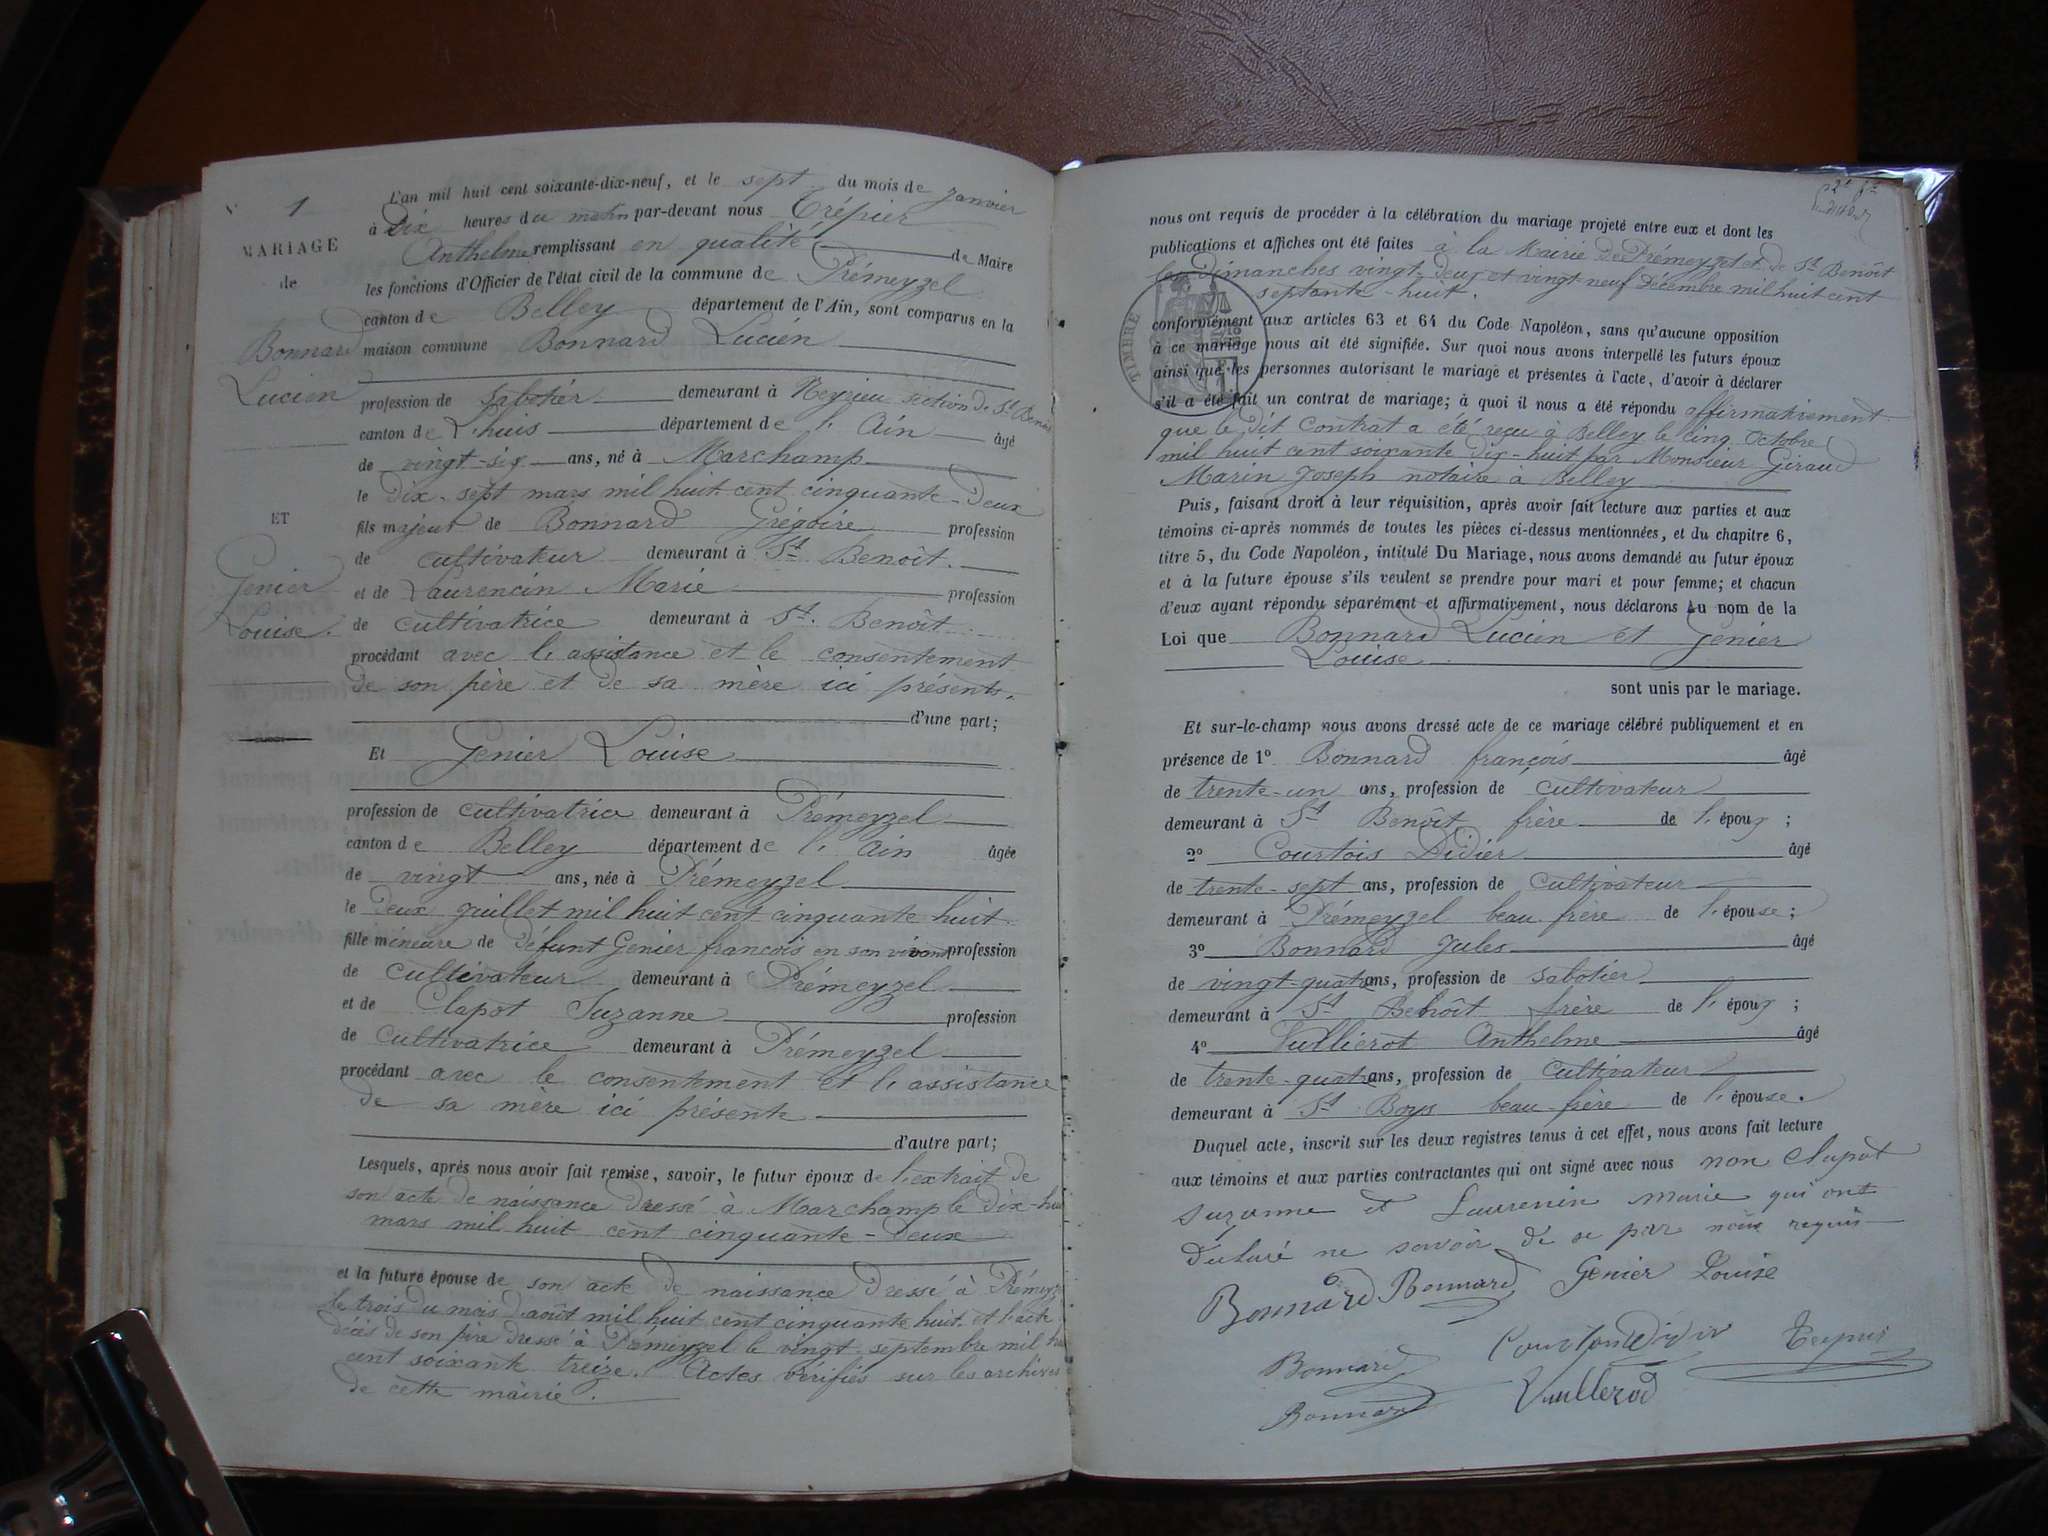 1
MARIAGE
de
Bonnard
Lucien
ET
Genier
Louise.
L'an mil huit cent soixante-dix-neuf, et le sept du mois de Janvier
à Dix heures du matin par-devant nous Trépier
Anthelme remplissant en qualité de Maire
les fonctions d'Officier de l'état civil de la commune de Prémeyzel
canton de Belley département de l'Ain, sont comparus en la
maison commune Bonnard Lucien
profession de sabotier demeurant à Neyrieu section de St Benoit
canton de L'huis département de l'Ain âgé
de vingt-six ans, né à Marchamp
le dix-sept mars mil huit cent cinquante-Deux
fils majeur de Bonnard Grégoire profession
de cultivateur demeurant à St Benoît.
et de Laurencin Marie profession
de cultivatrice demeurant à St. Benoît
procédant avec l'assistance et le consentement
de son père et de sa mère ici présents.
d'une part;
Et Genier Louise
profession de cultivatrice demeurant à Prémeyzel
canton de Belley département de l'Ain âgée
de vingt ans, née à Prémeyzel
le deux juillet mil huit cent cinquante huit
fille mineure de défunt Genier françois en son vivant profession
de cultivateur demeurant à Prémeyzel
et de Clapot Suzanne profession
de cultivatrice demeurant à Prémeyzel
procédant avec le consentement et l'assistance
de sa mère ici présente
d'autre part;
Lesquels, après nous avoir fait remise, savoir, le futur époux de l'extrait de
son acte de naissance dressé à Marchamp le dix-hui
mars mil huit cent cinquante-Deux
et la future épouse de son acte de naissance dressé à Prémeyz
le trois du mois d'août mil huit cent cinquante huit et l'acte
décès de son père dressé à Prémeyzel le vingt septembre mil hui
cent soixante treize. Actes vérifiés sur les archives
de cette mairie.
nous ont requis de procéder à la célébration du mariage projeté entre eux et dont les
publications et affiches ont été faites à la Mairie de Prémeyzel et de St Benôit
les Dimanches vingt-deux et vingt neuf Décembre mil huit cent
septante-huit.
TIMBRE
conformément aux articles 63 et 64 du Code Napoléon, sans qu'aucune opposition
à ce mariage nous ait été signifiée. Sur quoi nous avons interpellé les futurs époux
ainsi que les personnes autorisant le mariage et présentes à l'acte, d'avoir à déclarer
s'il a été fait un contrat de mariage; à quoi il nous a été répondu affirmativement
que le dit Contrat a été reçu à Belley le cinq Octobre
mil huit cent soixante dix-huit par Monsieur Giraud
Marin Joseph notaire à Belley
Puis, faisant droit à leur réquisition, après avoir fait lecture aux parties et aux
témoins ci-après nommés de toutes les pièces ci-dessus mentionnées, et du chapitre 6,
titre 5, du Code Napoléon, intitulé Du Mariage, nous avons demandé au futur époux
et à la future épouse s'ils veulent se prendre pour mari et pour femme; et chacun
d'eux ayant répondu séparément et affirmativement, nous déclarons au nom de la
Loi que Bonnard Lucien et Genier
Louise
sont unis par le mariage.
Et sur-le-champ nous avons dressé acte de ce mariage célébré publiquement et en
présence de 1º Bonnard françois âgé
de trente-un ans, profession de cultivateur
demeurant à St Benôit frère de l'époux ;
2º Courtois Didier âgé
de trente-sept ans, profession de cultivateur
demeurant à Prémeyzel beau frère de l'épouse ;
3º Bonnard Jules âgé
de vingt-quatre ans, profession de sabotier
demeurant à St Benôit frère de l'époux ;
4º Vullierot Anthelme âgé
de trente-quatre ans, profession de cultivateur
demeurant à St Boys beau-frère de l'épouse.
Duquel acte, inscrit sur les deux registres tenus à cet effet, nous avons fait lecture
aux témoins et aux parties contractantes qui ont signé avec nous non Clapot
Suzanne et Laurencin Marie qui ont
déclaré ne savoir de ce par nous requis
Bonnard Bonnard Genier Louise
Bonnard Courtois Didier Trépier
Bonnard Vullierod